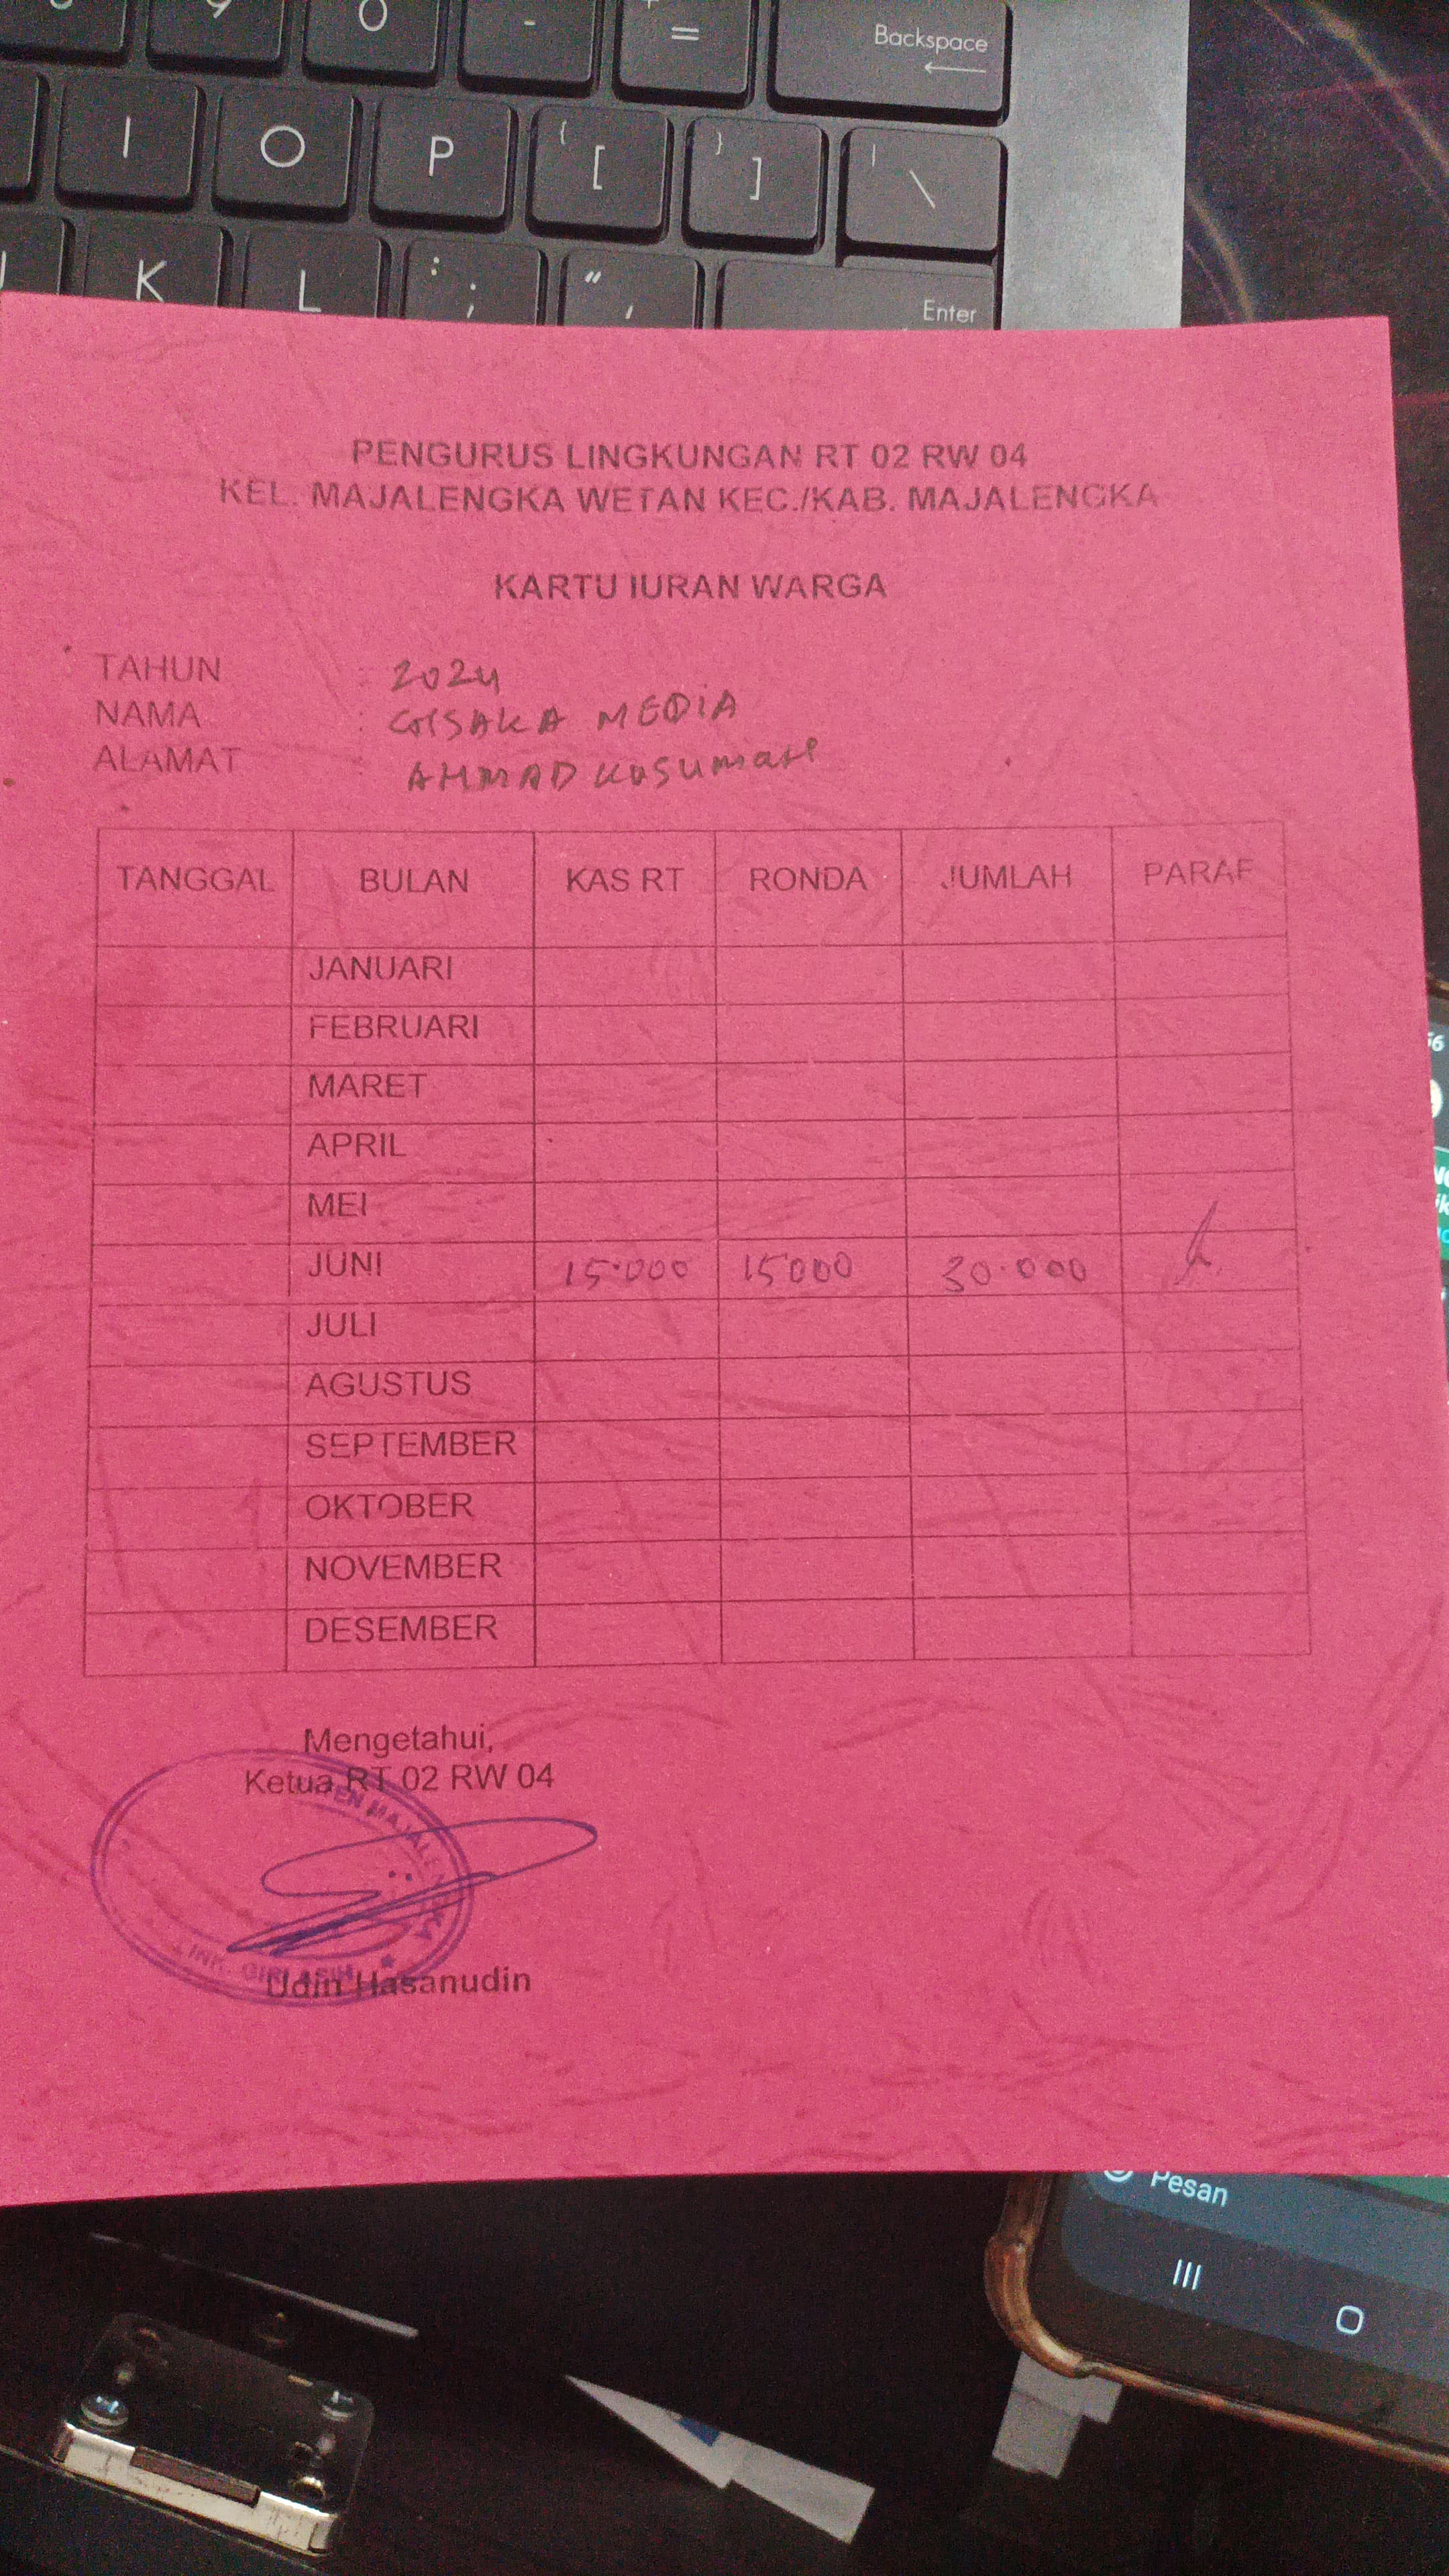 0 - + =
Backspace
I O P { [ } ] | \
K L : ; " ,
Enter
PENGURUS LINGKUNGAN RT 02 RW 04
KEL. MAJALENGKA WETAN KEC./KAB. MAJALENGKA
KARTU IURAN WARGA
TAHUN : 2024
NAMA : GISAKA MEDIA
ALAMAT : AHMAD KUSUMAH
TANGGAL BULAN KAS RT RONDA JUMLAH PARAF
JANUARI
FEBRUARI
MARET
APRIL
MEI
JUNI 15.000 15000 30.000
JULI
AGUSTUS
SEPTEMBER
OKTOBER
NOVEMBER
DESEMBER
Mengetahui,
Ketua RT 02 RW 04
MAJALENGKA
LINK. GIRI ASIH
Udin Hasanudin
Pesan